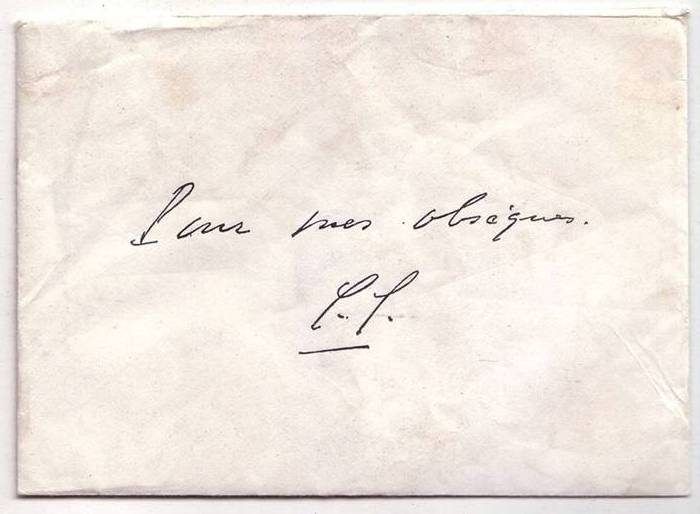 Pour mes obsèques.